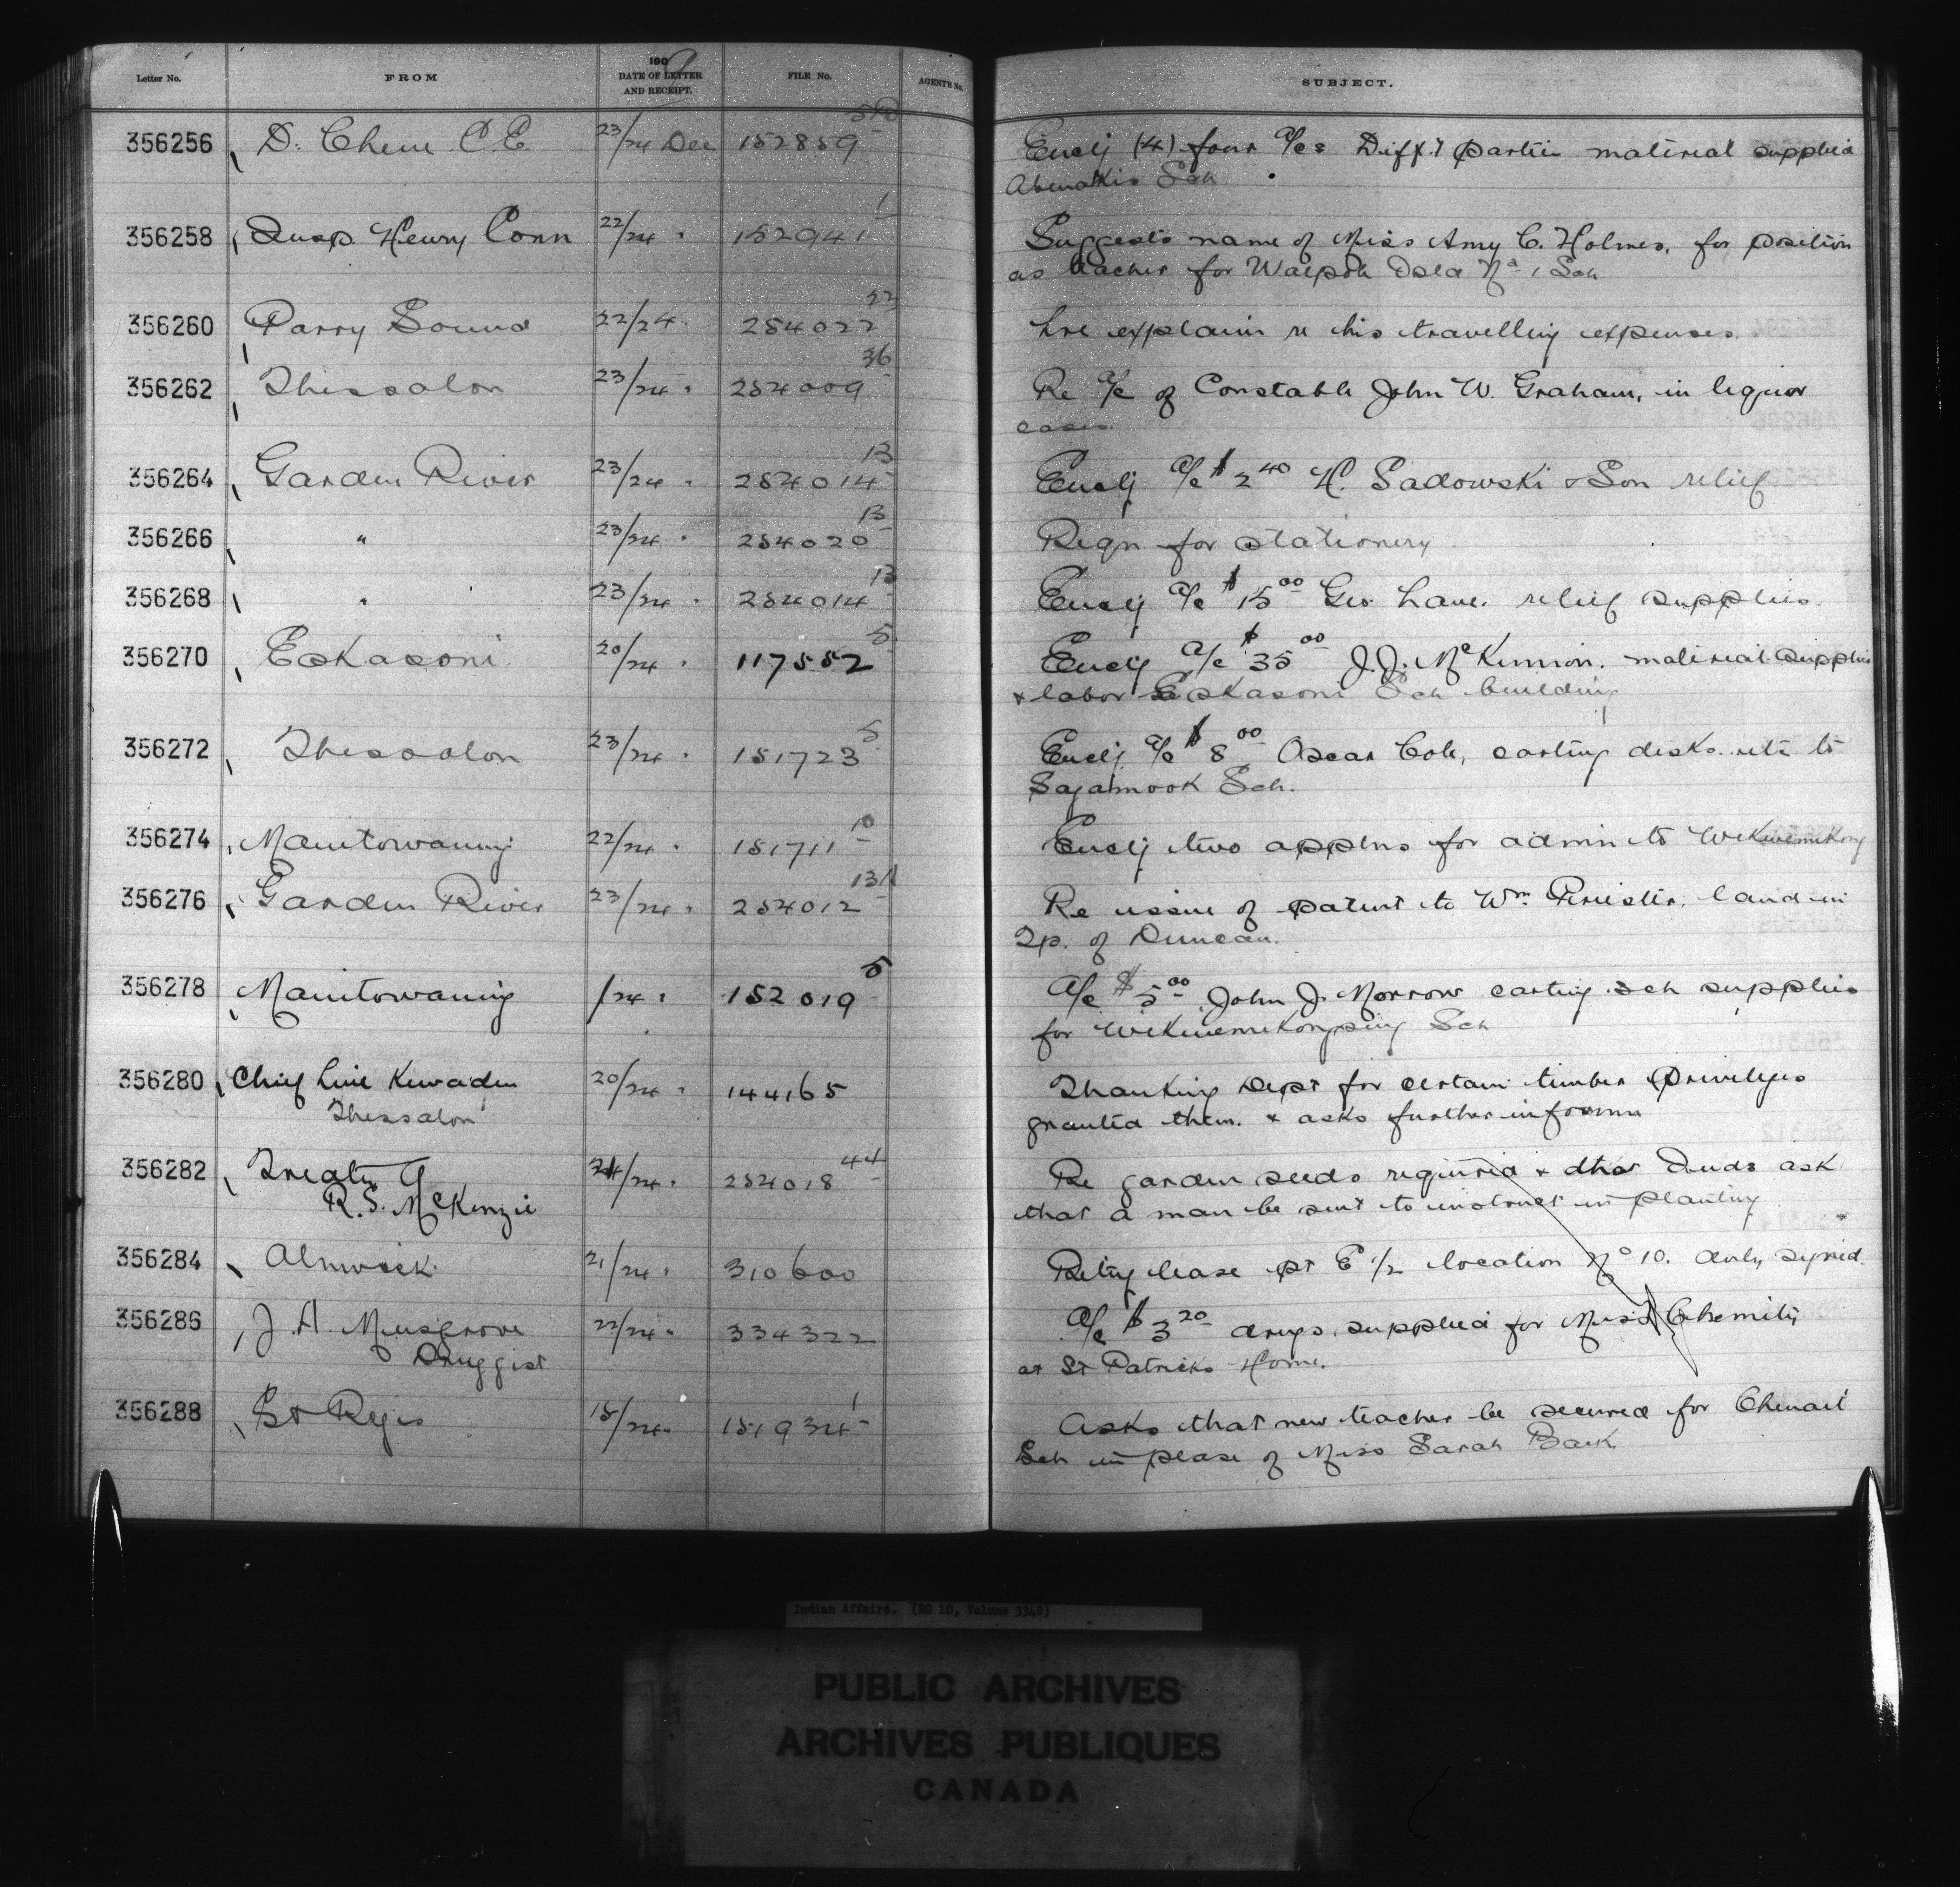 Letter No. FROM 190 9 DATE OF LETTER AND RECEIPT. FILE No. AGENT'S No. SUBJECT.
356256 D. Chene C.E. 23/24 Dec 152859 Encl'g (4) four a/cs Diff't parties material supplied
Abenakis Sch
356258 Insp. Henry Conn 22/24 " 152941 1 Suggests name of Miss Amy C. Holmes, for position
as teacher for Walpole Isld No 1 Sch
356260 Parry Sound 22/24 254022 22 explain re his travelling expenses.
356262 Thessalon 23/24 " 254009 36 Re a/c of Constable John W. Graham, in liquor
cases.
356264 Garden River 23/24 " 254014 13 Encl'g a/c $2 40 H. Sadowski & Son relief
356266 " 23/24 " 254020 13 Reqn for stationery
356268 " 23/24 " 254014 13 Encl'g a/c $15 00 Geo. Lane. relief supplies.
356270 Eskasoni 20/24 " 117552 5 Encl'g a/c $35 00 J.J. McKinnon. material supplies
& labor Eskasoni Sch building
356272 Thessalon 23/24 " 151723 5 Encl'g a/c $8 00 Oscar Cole, carting desks etc to
Sagamook Sch.
356274 Manitowaning 22/24 " 151711 10 Encl'g two applns for admn to Wikwemikong
356276 Garden River 23/24 " 254012 Re issue of patent to Wm land in
Tp. of Duncan.
356278 Manitowaning /24 " 152019 5 a/c $5 00 John J. Morrow carting sch supplies
for Wikwemikongsing Sch
356280 Chief Kewaden 20/24 " 144165 Thanking Dept for certain timber privileges
Thessalon granted them. & asks further informn
356282 Treaty 24/24 " 254018 44 Re garden seeds required & other Inds ask
R.S. McKenzie that a man be sent to instruct in planting
356284 Alnwick 21/24 " 310600 Retng lease pt E 1/2 location No 10. duly signed.
356286 J.A. Musgrove 22/24 " 334322 a/c $3 20 drugs supplied for Miss
Druggist at St Patricks Home.
356288 St Regis 18/24 " 151934 1 Asks that new teacher be secured for Chenail
Sch in place of Miss Sarah Back
Indian Affairs. (RG 10, Volume 3348)
PUBLIC ARCHIVES
ARCHIVES PUBLIQUES
CANADA